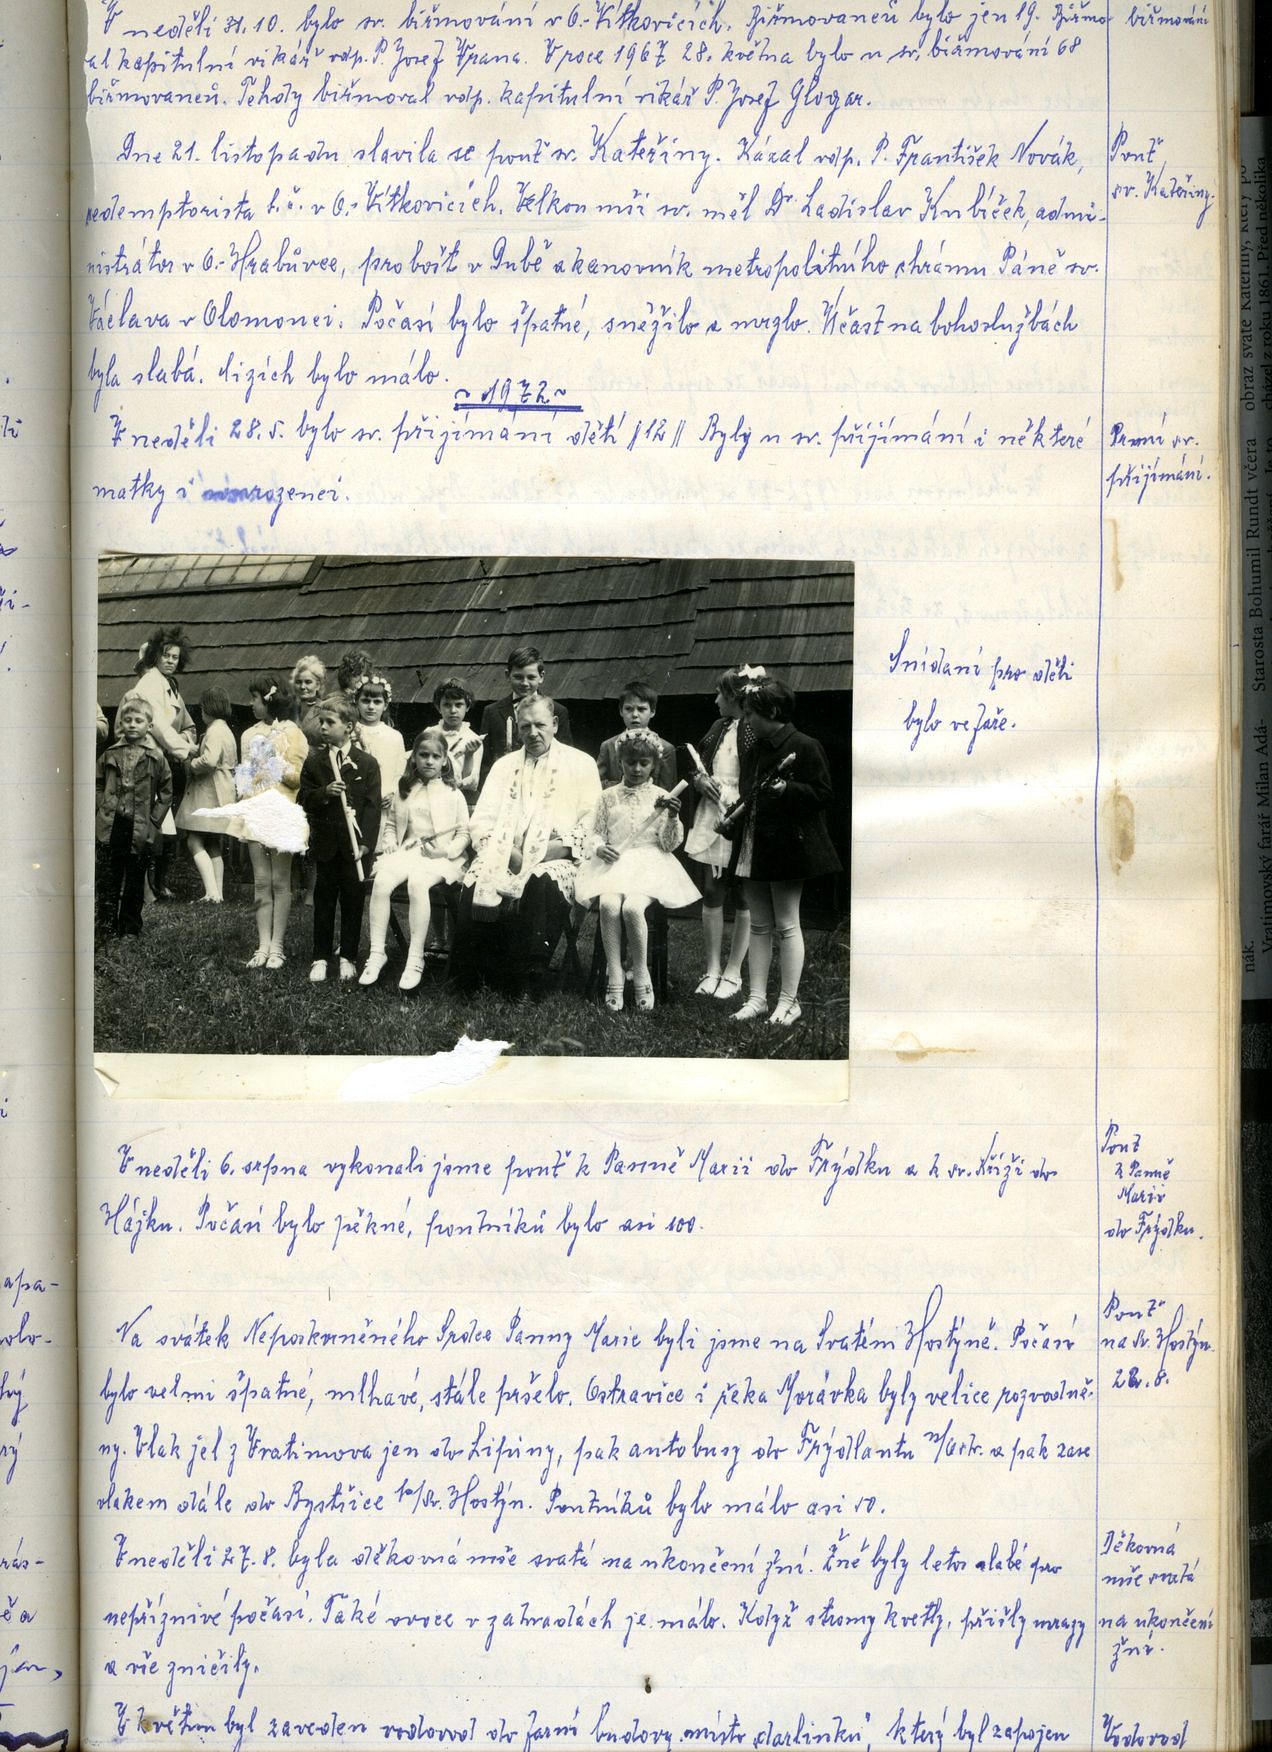 V neděli 31.10. bylo sv. biřmování v O.-Vítkovicích. Biřmovanců bylo jen 19. Biřmo-
biřmování
al kapitulní vikář vdp. P. Josef Vrana. V roce 1967 28. května bylo u sv. biřmování 68
biřmovanců. Tehdy biřmoval vdp. kapitulní vikář P. Josef Glogar.
Dne 21. listopadu slavila se pouť sv. Kateřiny. Kázal vdp. P. František Novák,
Pouť
sv. Kateřiny
redemptorista t.č. v O.-Vítkovicích. Velkou mši sv. měl Dr. Ladislav Kubíček, admi-
nistrátor v O.-Hrabůvce, probošt v Dubě a kanovník metropolitního chrámu Páně sv.
Václava v Olomouci. Počasí bylo špatné, sněžilo a mrzlo. Účast na bohoslužbách
byla slabá. Cizích bylo málo.
~ 1972 ~
V neděli 28.5. bylo sv. přijímání dětí /12/ Byly u sv. přijímání i některé
První sv.
přijímání.
matky i sourozenci.
Snídaní pro děti
bylo ve faře.
V neděli 6. srpna vykonali jsme pouť k Panně Marii do Frýdku a k sv. Kříži do
Pouť
k Panně
Marii
do Frýdku.
Hájku. Počasí bylo pěkné, poutníků bylo asi 100.
Na svátek Neposkvrněného Srdce Panny Marie byli jsme na Svatém Hostýně. Počasí
Pouť
na Sv. Hostýn
22.8.
bylo velmi špatné, mlhavé, stále pršelo. Ostravice i řeka Morávka byly velice rozvodně-
ny. Vlak jel z Vratimova jen do Lipiny, pak autobusy do Frýdlantu n/Ostr. a pak zase
vlakem dále do Bystřice p/Sv. Hostýn. Poutníků bylo málo asi 50.
V neděli 27.8. byla děkovná mše svatá na ukončení žní. Žně byly letos slabé pro
Děkovná
mše svatá
na ukončení
žní.
nepříznivé počasí. Také ovoce v zahradách je málo. Když stromy kvetly, přišly mrazy
a vše zničily.
V květnu byl zaveden vodovod do farní budovy místo „darlinku", který byl zapojen
Vodovod
obraz svaté Kateřiny, který po
chází z roku 1861. Před několika
Starosta Bohumil Rundt včera
Vratimovský farář Milan Adá-
nák.